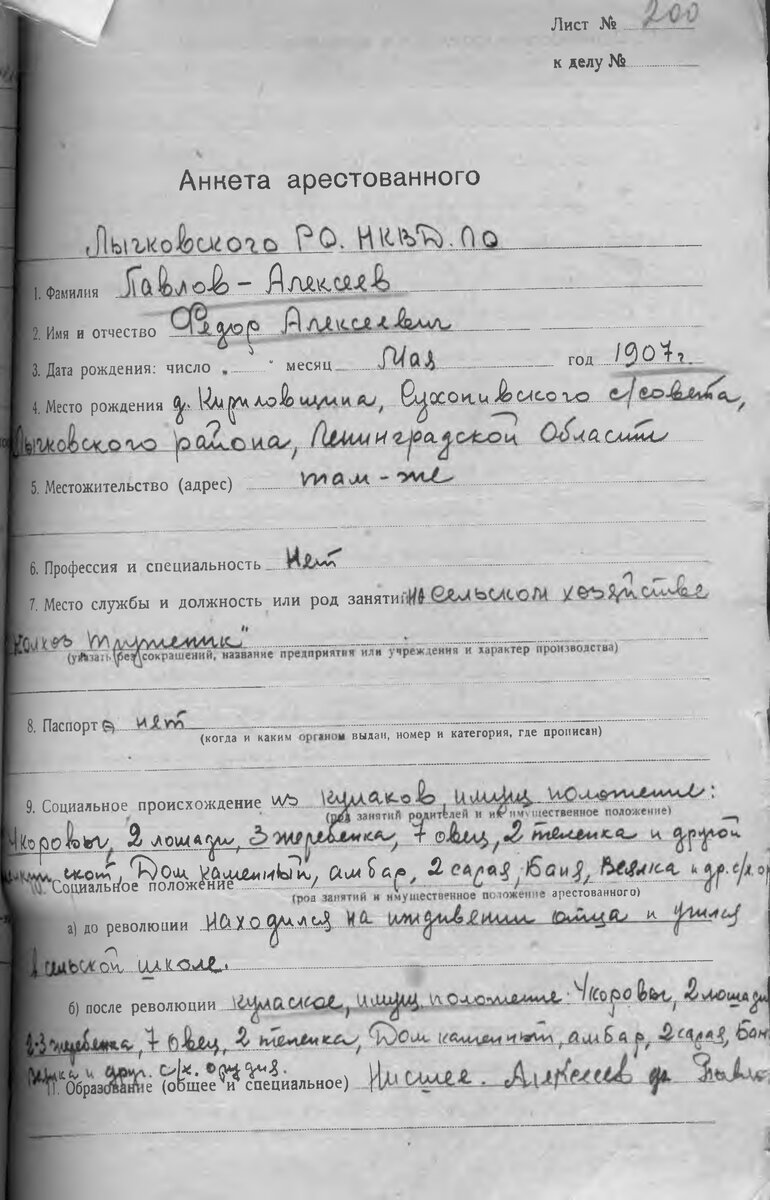 Лист № 200
к делу №
Анкета арестованного
Лычковского РО. НКВД. ЛО
1. Фамилия Павлов – Алексеев
2. Имя и отчество Федор Алексеевич
3. Дата рождения: число „ “ месяц Мая год 1907 г.
4. Место рождения д. Кириловщина, Сухонивского с/совета,
Лычковского района, Ленинградской Области
5. Местожительство (адрес) там-же
6. Профессия и специальность Нет
7. Место службы и должность или род занятий на сельском хозяйстве
колхоз Труженик"
(указать без сокращений, название предприятия или учреждения и характер производства)
8. Паспорт нет
(когда и каким органом выдан, номер и категория, где прописан)
9. Социальное происхождение из кулаков, имущ положение:
(род занятий родителей и их имущественное положение)
4 коровы, 2 лошади, 3 жеребенка, 7 овец, 2 теленка и другой
скот, Дом каменный, амбар, 2 сарая, Баня, Веялка и др. с/х. ор
10. Социальное положение
(род занятий и имущественное положение арестованного)
а) до революции находился на иждивении отца и учился
в сельской школе.
б) после революции кулаское, имущ положение: 4 коровы, 2 лошади
2-3 жеребенка, 7 овец, 2 теленка, Дом каменный, амбар, 2 сарая, Бан
веялка и друг. с/х. орудия.
11. Образование (общее и специальное) Нисшее. Алексеев Павло